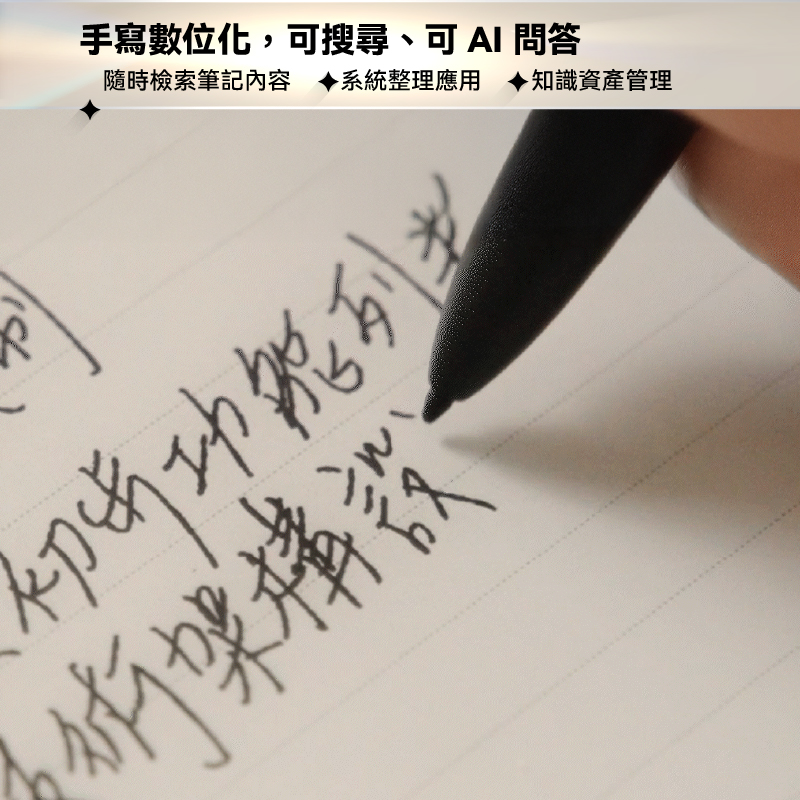 手寫數位化，可搜尋、可 AI 問答
✦ 隨時檢索筆記內容 ✦系統整理應用 ✦知識資產管理
制
初步功能列表
技術架構設